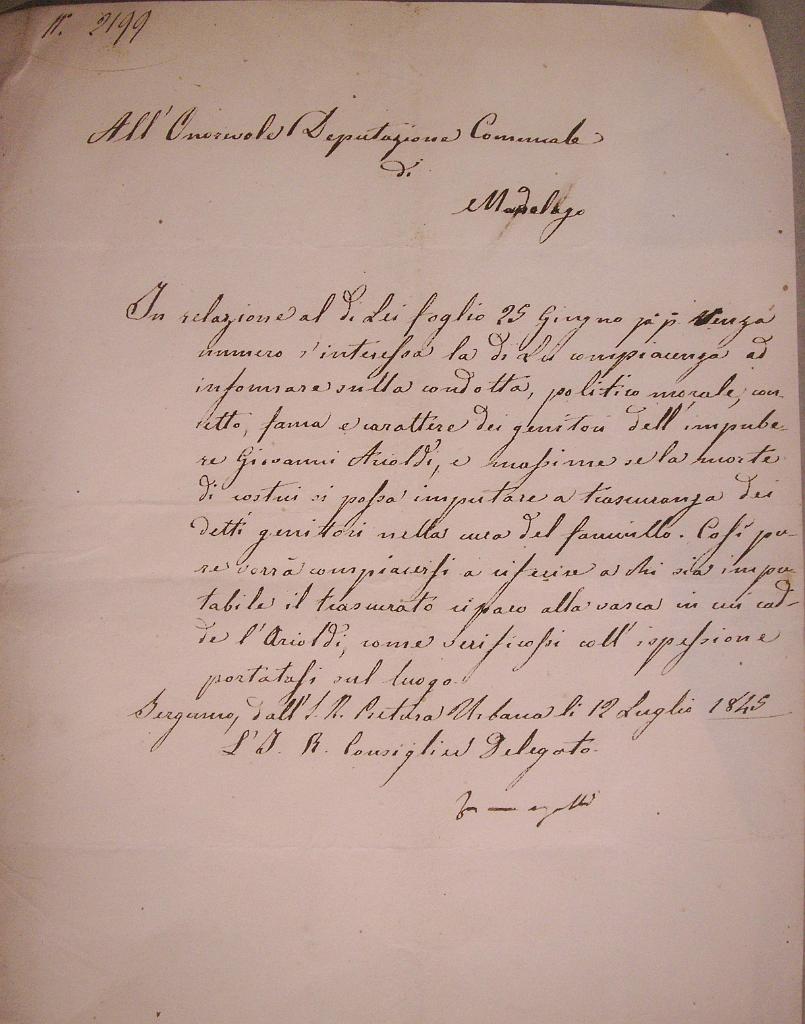 N. 2199
All' Onorevole Deputazione Comunale
di
Madolago
In relazione al di Lei foglio 25 Giugno p.p. senza
numero s'interessa la di Lei compiacenza ad
informare sulla condotta, politico morale, con-
cetto, fama e carattere dei genitori dell' impube-
re Giovanni Arioldi, e massime se la morte
di costui si possa imputare a trascuranza dei
detti genitori nella cura del fanciullo. Così pu-
re verrà compiacersi a riferire a chi sia impu-
tabile il trascurato riparo alla vasca in cui cad-
de l'Arioldi, come verificossi coll' ispessione
portatasi sul luogo.
Bergamo, dall' I. R. Pretura Urbana li 12 Luglio 1845
L' I. R. Consiglier Delegato